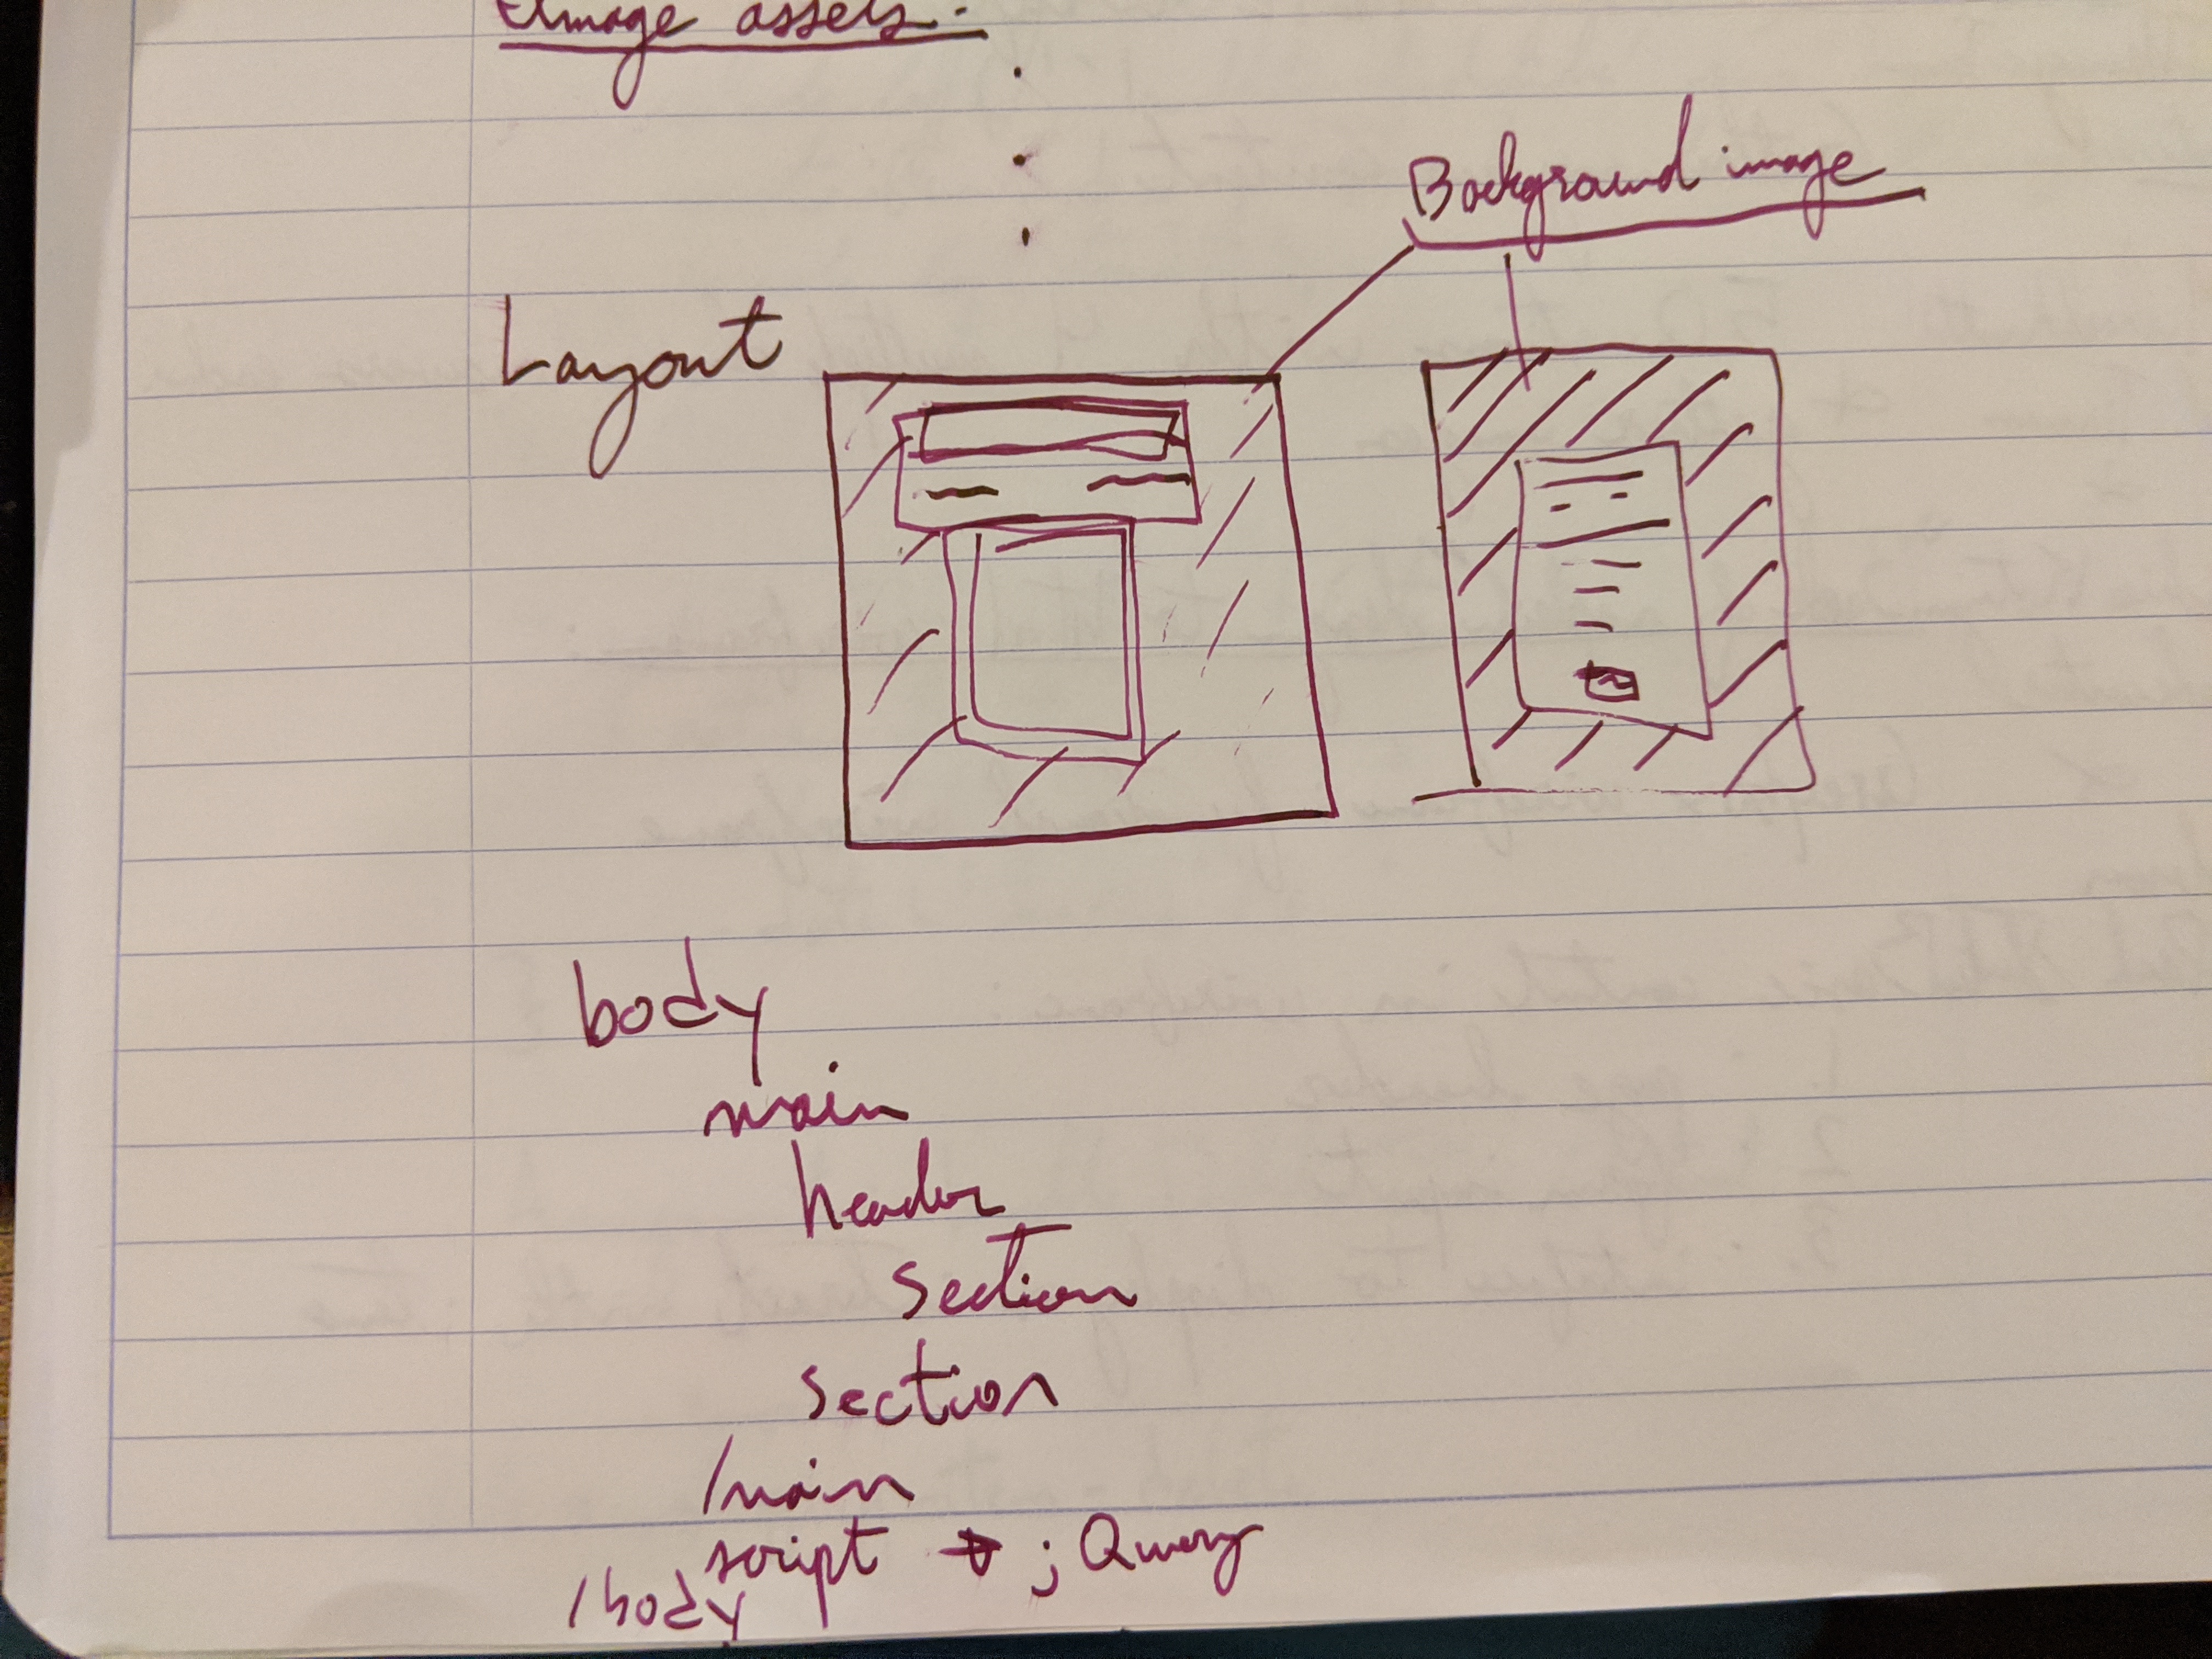 Image assets.
Background image
Layout
body
main
header
section
section
/main
script → jQuery
/body